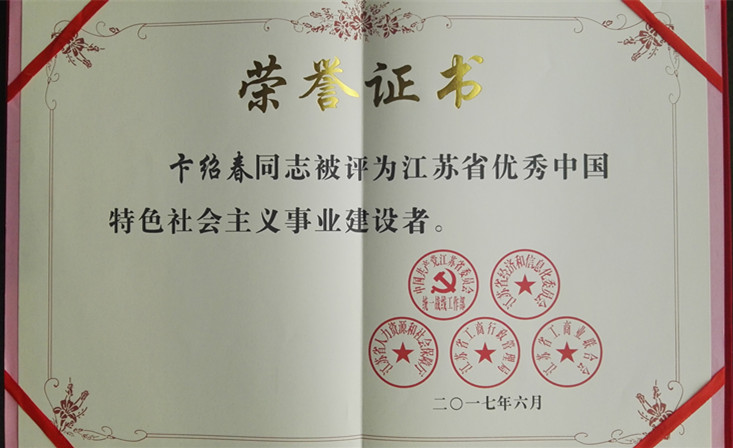 荣誉证书
卞绍春同志被评为江苏省优秀中国
特色社会主义事业建设者。
中国共产党江苏省委员会
统一战线工作部
江苏省经济和信息化委员会
江苏省人力资源和社会保障厅
江苏省工商行政管理局
江苏省工商业联合会
二〇一七年六月